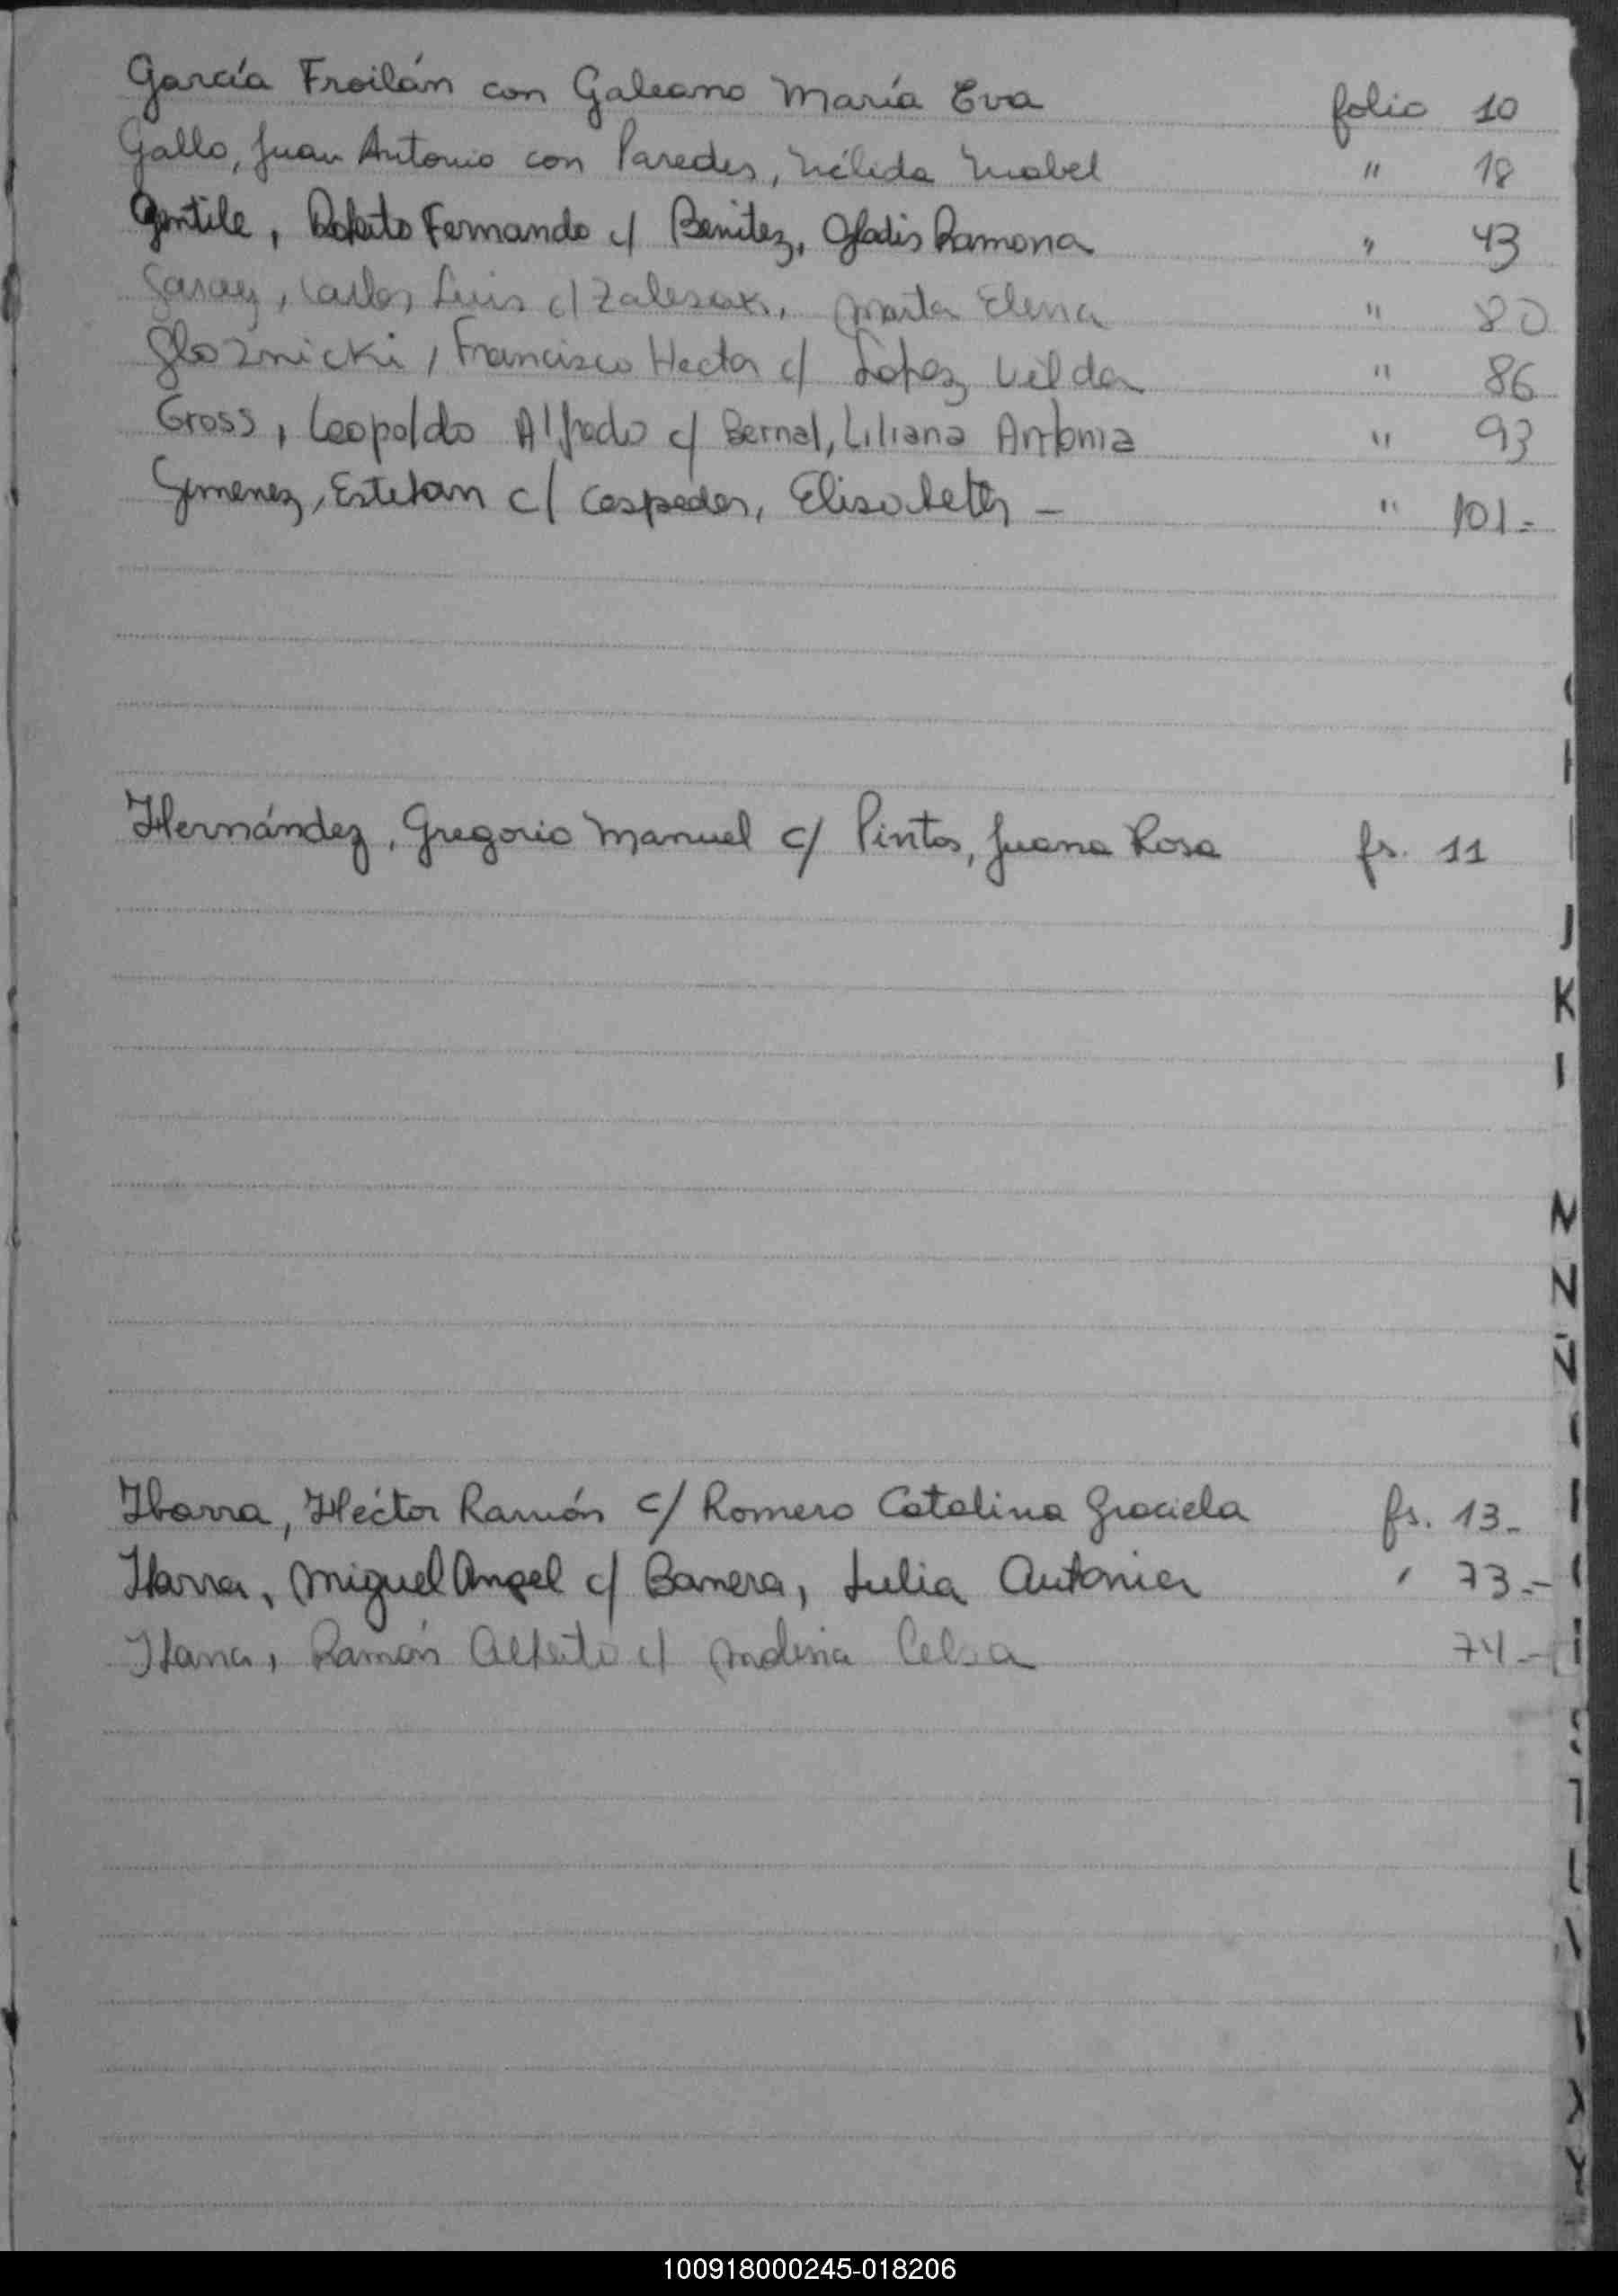 García Froilán con Galeano María Eva folio 10
Gallo, Juan Antonio con Paredes, Nélida Mabel " 18
Gentile, Roberto Fernando c/ Benitez, Gladis Ramona " 43
Garay, Carlos Luis c/ Zalesak, Marta Elena " 80
Gloznicki, Francisco Hector c/ Lopez Vilda " 86
Gross, Leopoldo Alfredo c/ Bernal, Liliana Antonia " 93
Gimenez, Esteban c/ Cespedes, Elisabeth - " 101.=
Hernández, Gregorio Manuel c/ Pintos, Juana Rosa fs. 11
J
K
N
N
Ibarra, Héctor Ramón c/ Romero Catalina Graciela fs. 13.-
Ibarra, Miguel Angel c/ Barrera, Julia Antonia " 73.-
Ibarra, Ramón Alberto c/ Medina Celsa 74.-
100918000245-018206